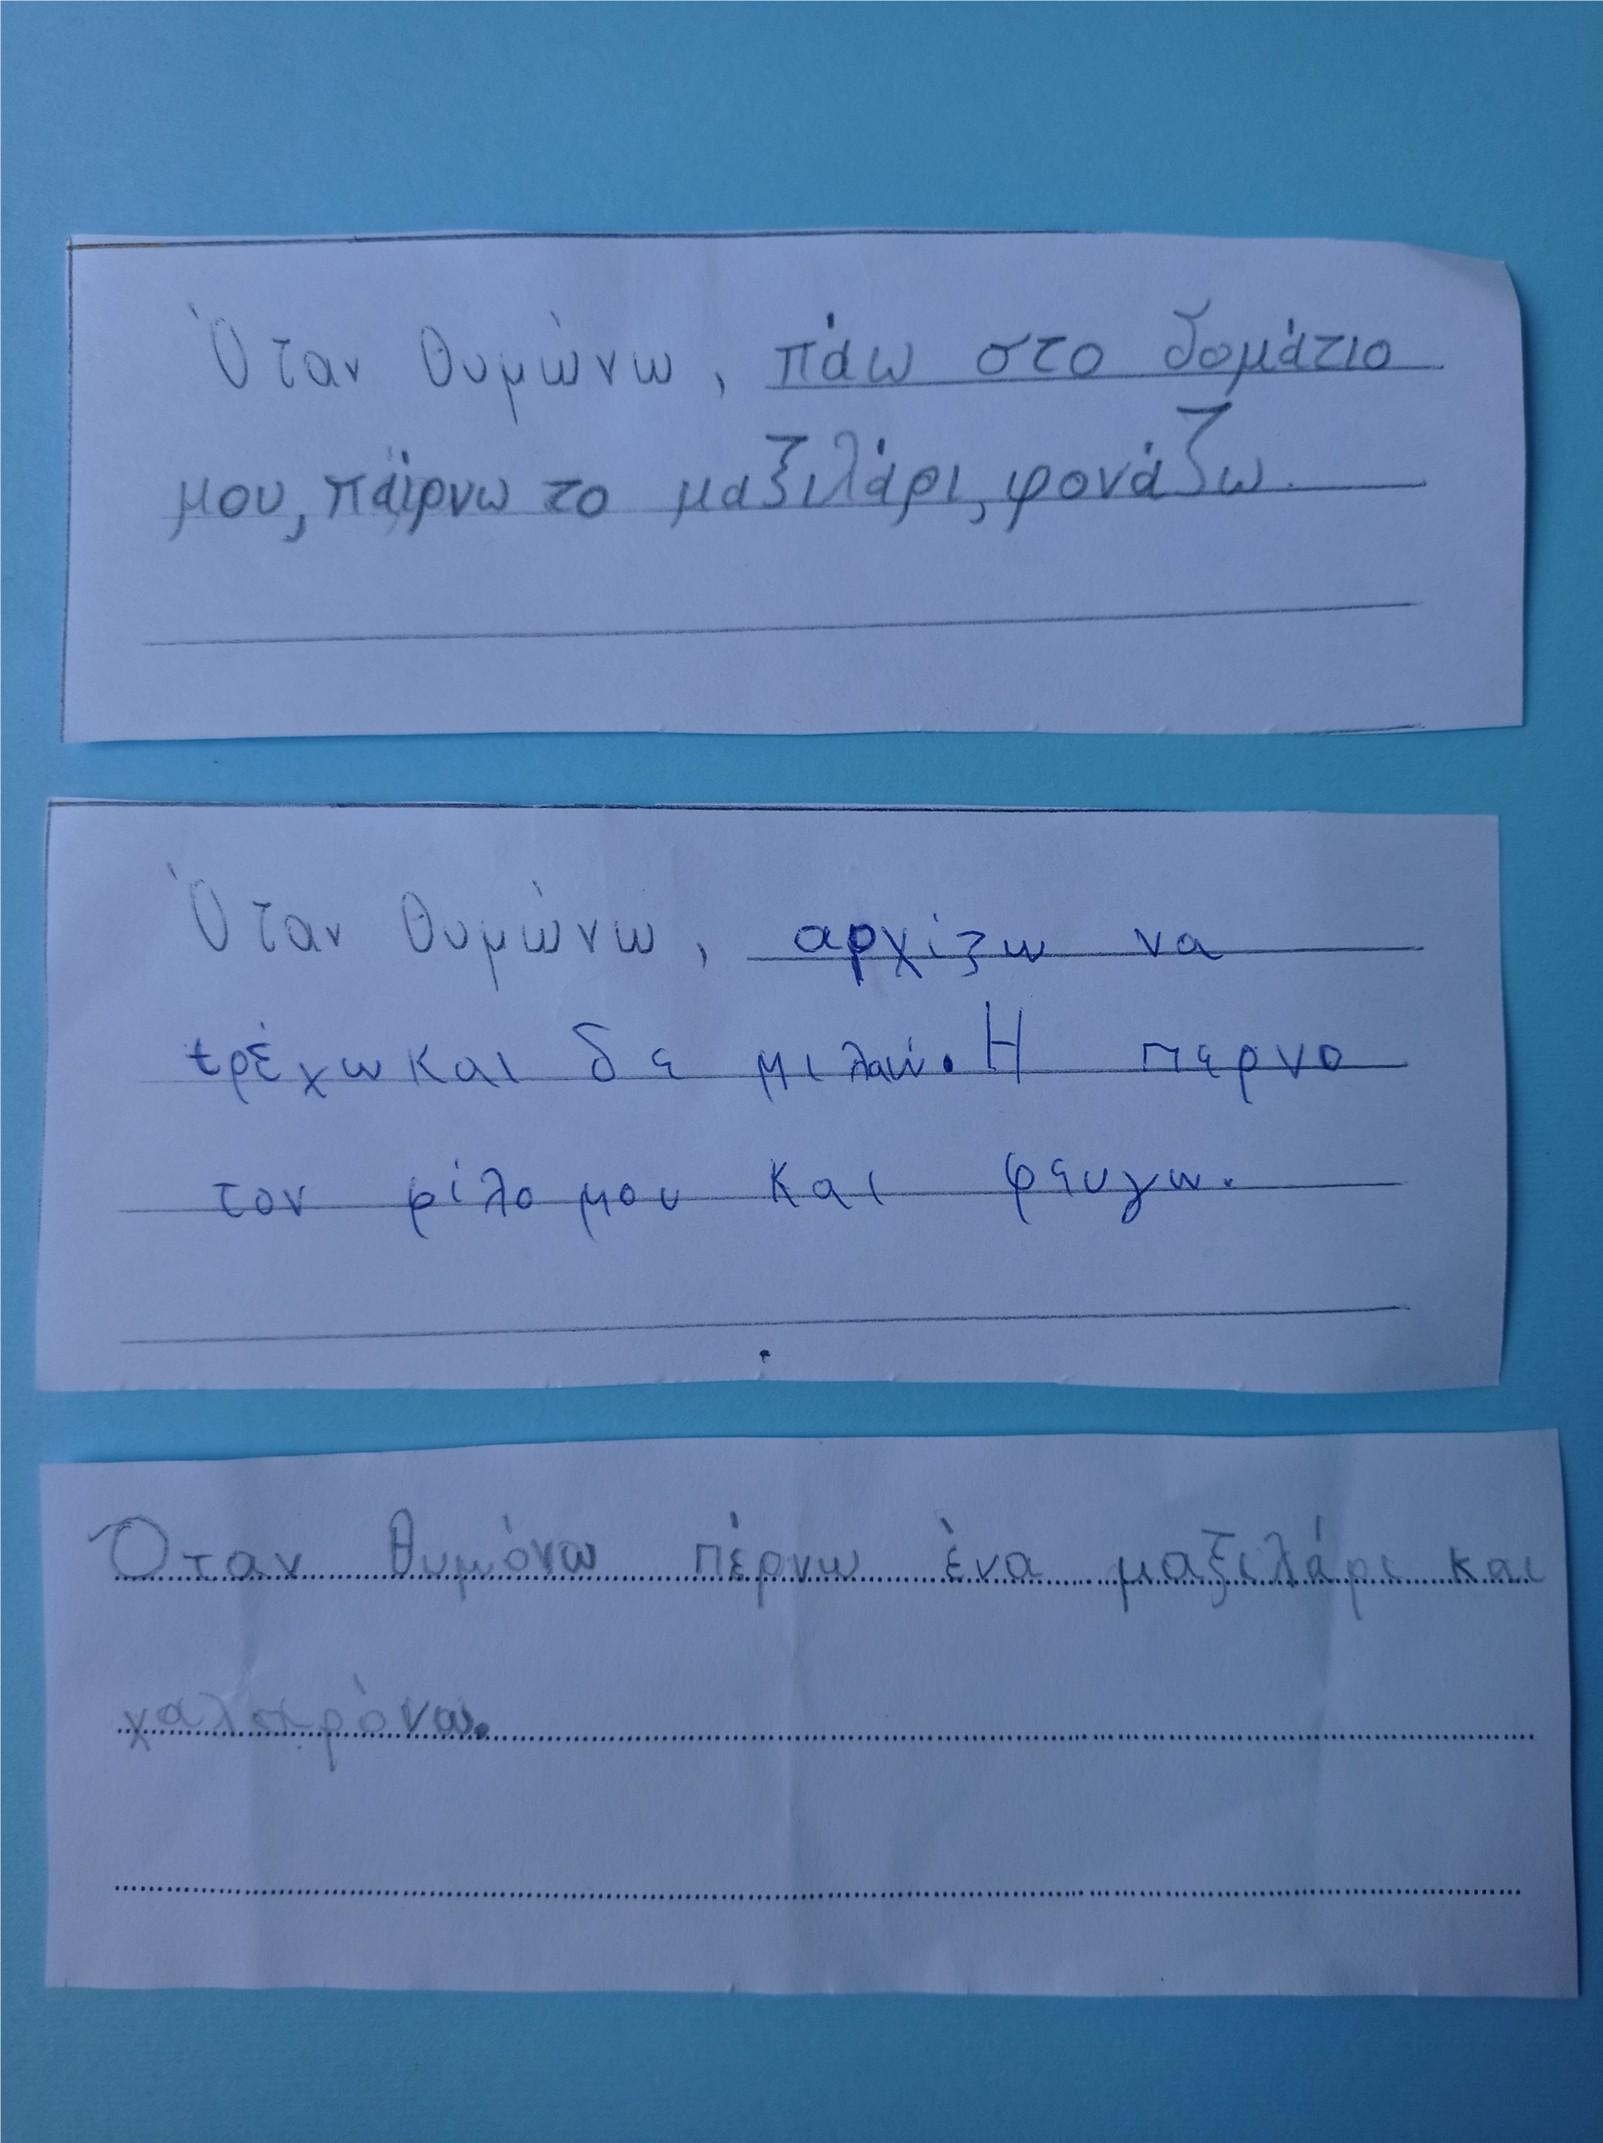 Όταν θυμώνω, πάω στο δομάτιο
μου, πάιρνω το μαξιλάρι, φονάζω.
Όταν θυμώνω, αρχίζω να
τρέχω και δε μιλαώ. Η περνο
τον φίλο μου και φευγω.
Όταν θυμόνω πέρνω ένα μαξιλάρι και
χαλαρόνω.